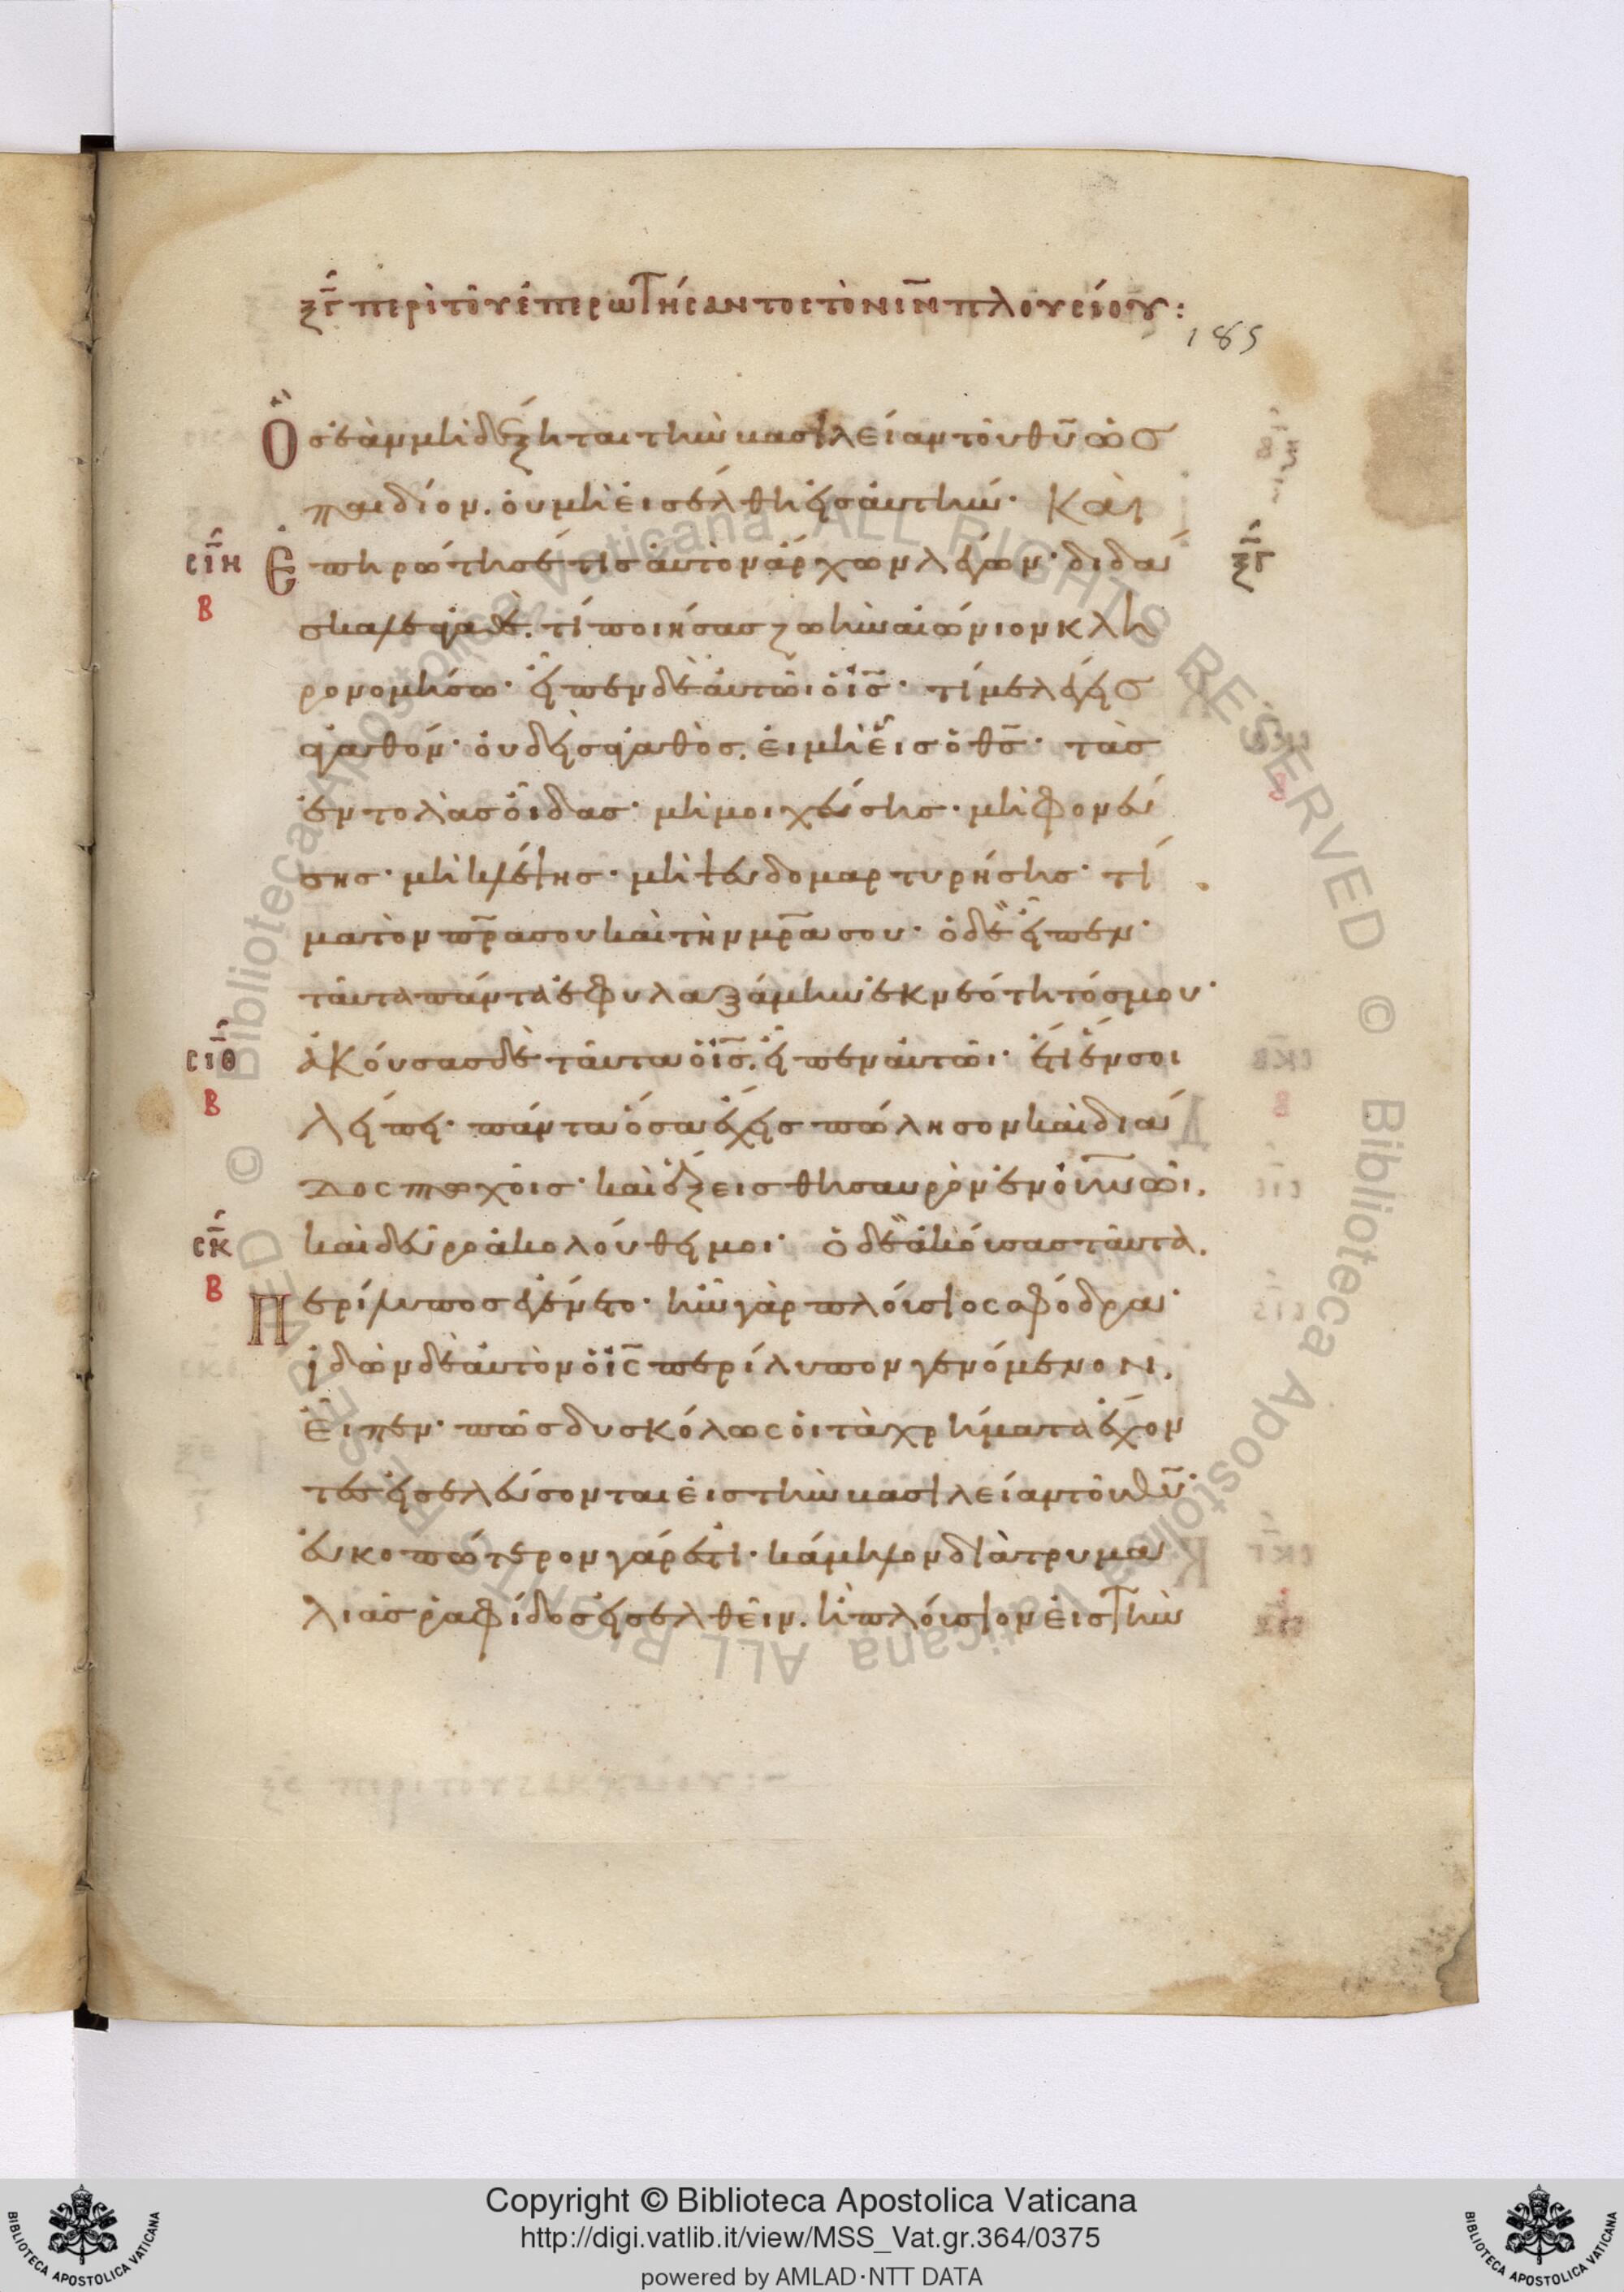 ξγ περὶ τοῦ ἐπερωτήσαντος τὸν ιν πλουσίου:
185
Ὃσ ἐὰν μὴ δέξηται τὴν βασιλείαν τοῦ θυ ὡσ
παιδίον. οὐ μὴ εἰσέλθη εἰσ αὐτήν· Καὶ
σιη
ξγ
Ἐπηρώτησέ τισ αὐτὸν ἄρχων λέγων· διδά
β
σκαλε ἀγαθὲ. τί ποιήσασ ζωὴν αἰώνιον κλη
ρονομήσω· εἶπεν δὲ αὐτῶι ὁ ισ· τί με λέγεισ
ἀγαθόν· οὐδεὶσ ἀγαθὸσ. εἰ μὴ εἷσ ὁ θσ· τὰσ
ἐντολὰσ οἶδασ· μὴ μοιχεύσησ· μὴ φονεύ
σησ· μὴ κλέψησ· μὴ ψευδομαρτυρήσησ· τί
μα τὸν πρα σου καὶ τὴν μρα σου· ὁ δὲ εἶπεν·
ταῦτα πάντα ἐφυλαξάμην ἐκ νεότητόσ μου·
σιθ
ἀκούσασ δὲ ταῦτα ὁ ισ. εἶπεν αὐτῶι· ἔτι ἕν σοι
β
λείπει· πάντα ὅσα ἔχεισ πώλησον καὶ διά
δοσ πτωχοῖσ· καὶ ἕξεισ θησαυρὸν ἐν ουνωῶι.
σκ
καὶ δεῦρο ἀκολούθει μοι· ὁ δὲ ἀκούσασ ταῦτα.
β
Περίλυποσ ἐγένετο· ἦν γὰρ πλούσιοσ σφόδρα·
ἰδὼν δὲ αὐτὸν ὁ ισ περίλυπον γενόμενον.
εἶπεν· πῶσ δυσκόλωσ οἱ τὰ χρήματα ἔχον
τεσ εἰσελεύσονται εἰσ τὴν βασιλείαν τοῦ θυ·
εὐκοπώτερον γάρ ἐστι· κάμηλον διὰ τρυμα
λιᾶσ ῥαφίδοσ εἰσελθεῖν. ἢ πλούσιον εἰσ τὴν
Copyright © Biblioteca Apostolica Vaticana
http://digi.vatlib.it/view/MSS_Vat.gr.364/0375
powered by AMLAD·NTT DATA
BIBLIOTECA APOSTOLICA VATICANA
BIBLIOTECA APOSTOLICA VATICANA